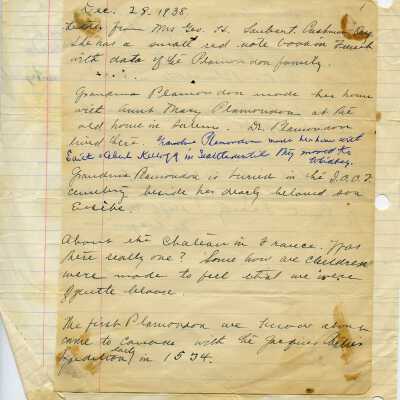 Dec. 28. 1938
Letter from Mrs Geo. H. Saubert, says
she has a small red note book in French
with data of the Plamondon family.
Grandma Plamondon made her home
with Aunt Mary Plamondon at the
old home in Salem. Dr. Plamondon
lived here Grandma Plamondon made her home with
& Albert Kellogg in Seattle until they moved to
Grandma Plamondon is buried in the I.O.O.F
cemetery beside her dearly beloved son
Eusibe.
About the Chateau in France. Was
there really one? Some how we children
were made to feel that we were
of gentle blood.
The first Plamondon we know about
came to Canada with the Jacques
Expedition in 1534.